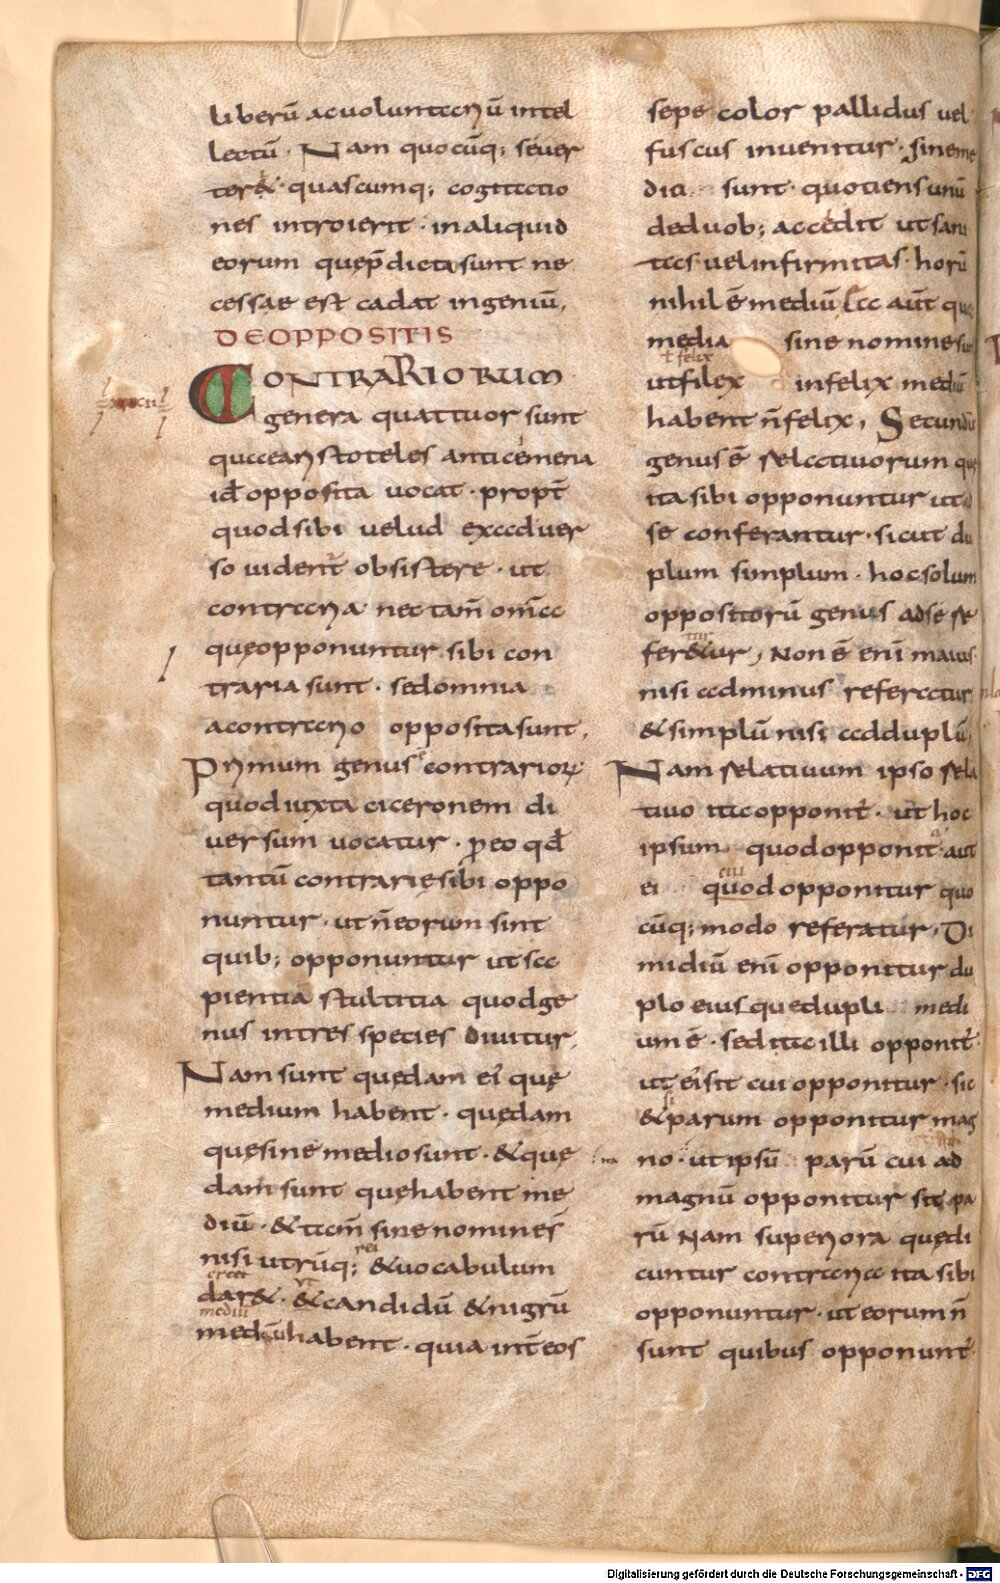 liberū ac uoluntariū intel
lectū. Nam quocūq; se uer
ter& quascumq; cogitatio
nes introierit in aliquid
eorum quę p̄dicta sunt ne
cessae est cadat ingeniū,
DE OPPOSITIS
CONTRARIORUM
genera quattuor sunt
quae aristoteles anticemena
id̄ opposita uocat. propt̄
quod sibi uelud ex aduer
so uident̄ obsistere. ut
contraria nec tam̄ om̄a
quę opponuntur sibi con
traria sunt. sed omnia
a contrario opposita sunt,
Primum genus contrarioꝝ
quod iuxta ciceronem di
uersum uocatur. ꝓ eo qd̄
tantū contrarię sibi oppo
nuntur. ut n̄ eorum sint
quib; opponuntur ut sa
pientia stultitia quod ge
nus in tres species diuitur,
Nam sunt quędam ei quę
medium habent. quędam
quę sine medio sunt. & quę
dam sunt quę habent me
diū. & tam̄ sine nomine s̄
nisi utrūq; & uocabulum
dar&. & candidū & nigrū
mediū habent. quia int̄ eos
sepe color pallidus uel
fuscus inuenitur. sine me
dia sunt. quotiens unū
de duob; accedit ut sani
tas uel infirmitas. horū
nihil ē mediū Ea aūt quę
media sine nomine su
t felix
ut filex infelix mediū
habent n̄ felix, Secundū
genus ē relatiuorum quę
ita sibi opponuntur ut ad
se conferantur. sicut du
plum simplum. hoc solum
oppositorū genus ad se re
fer&ur, Non ē enī maius
nisi ad minus referatur
& simplū nisi ad duplū,
Nam relatiuum ipso rela
tiuo ita opponit̄. ut hoc
ipsum quod opponit̄ aut
cui
ei quod opponitur quo
cūq; modo referatur, Di
midiū enī opponitur du
plo eiusque dupli medi
um ē. sed ita illi opponit̄
ut ei sit cui opponitur. sic
& parum opponitur mag
no. ut ipsū parū cui ad
magnū opponitur sit pa
rū Nam superiora quę di
cuntur contraria ita sibi
opponuntur. ut eorum n̄
sunt quibus opponunt̄
Digitalisierung gefördert durch die Deutsche Forschungsgemeinschaft - DFG